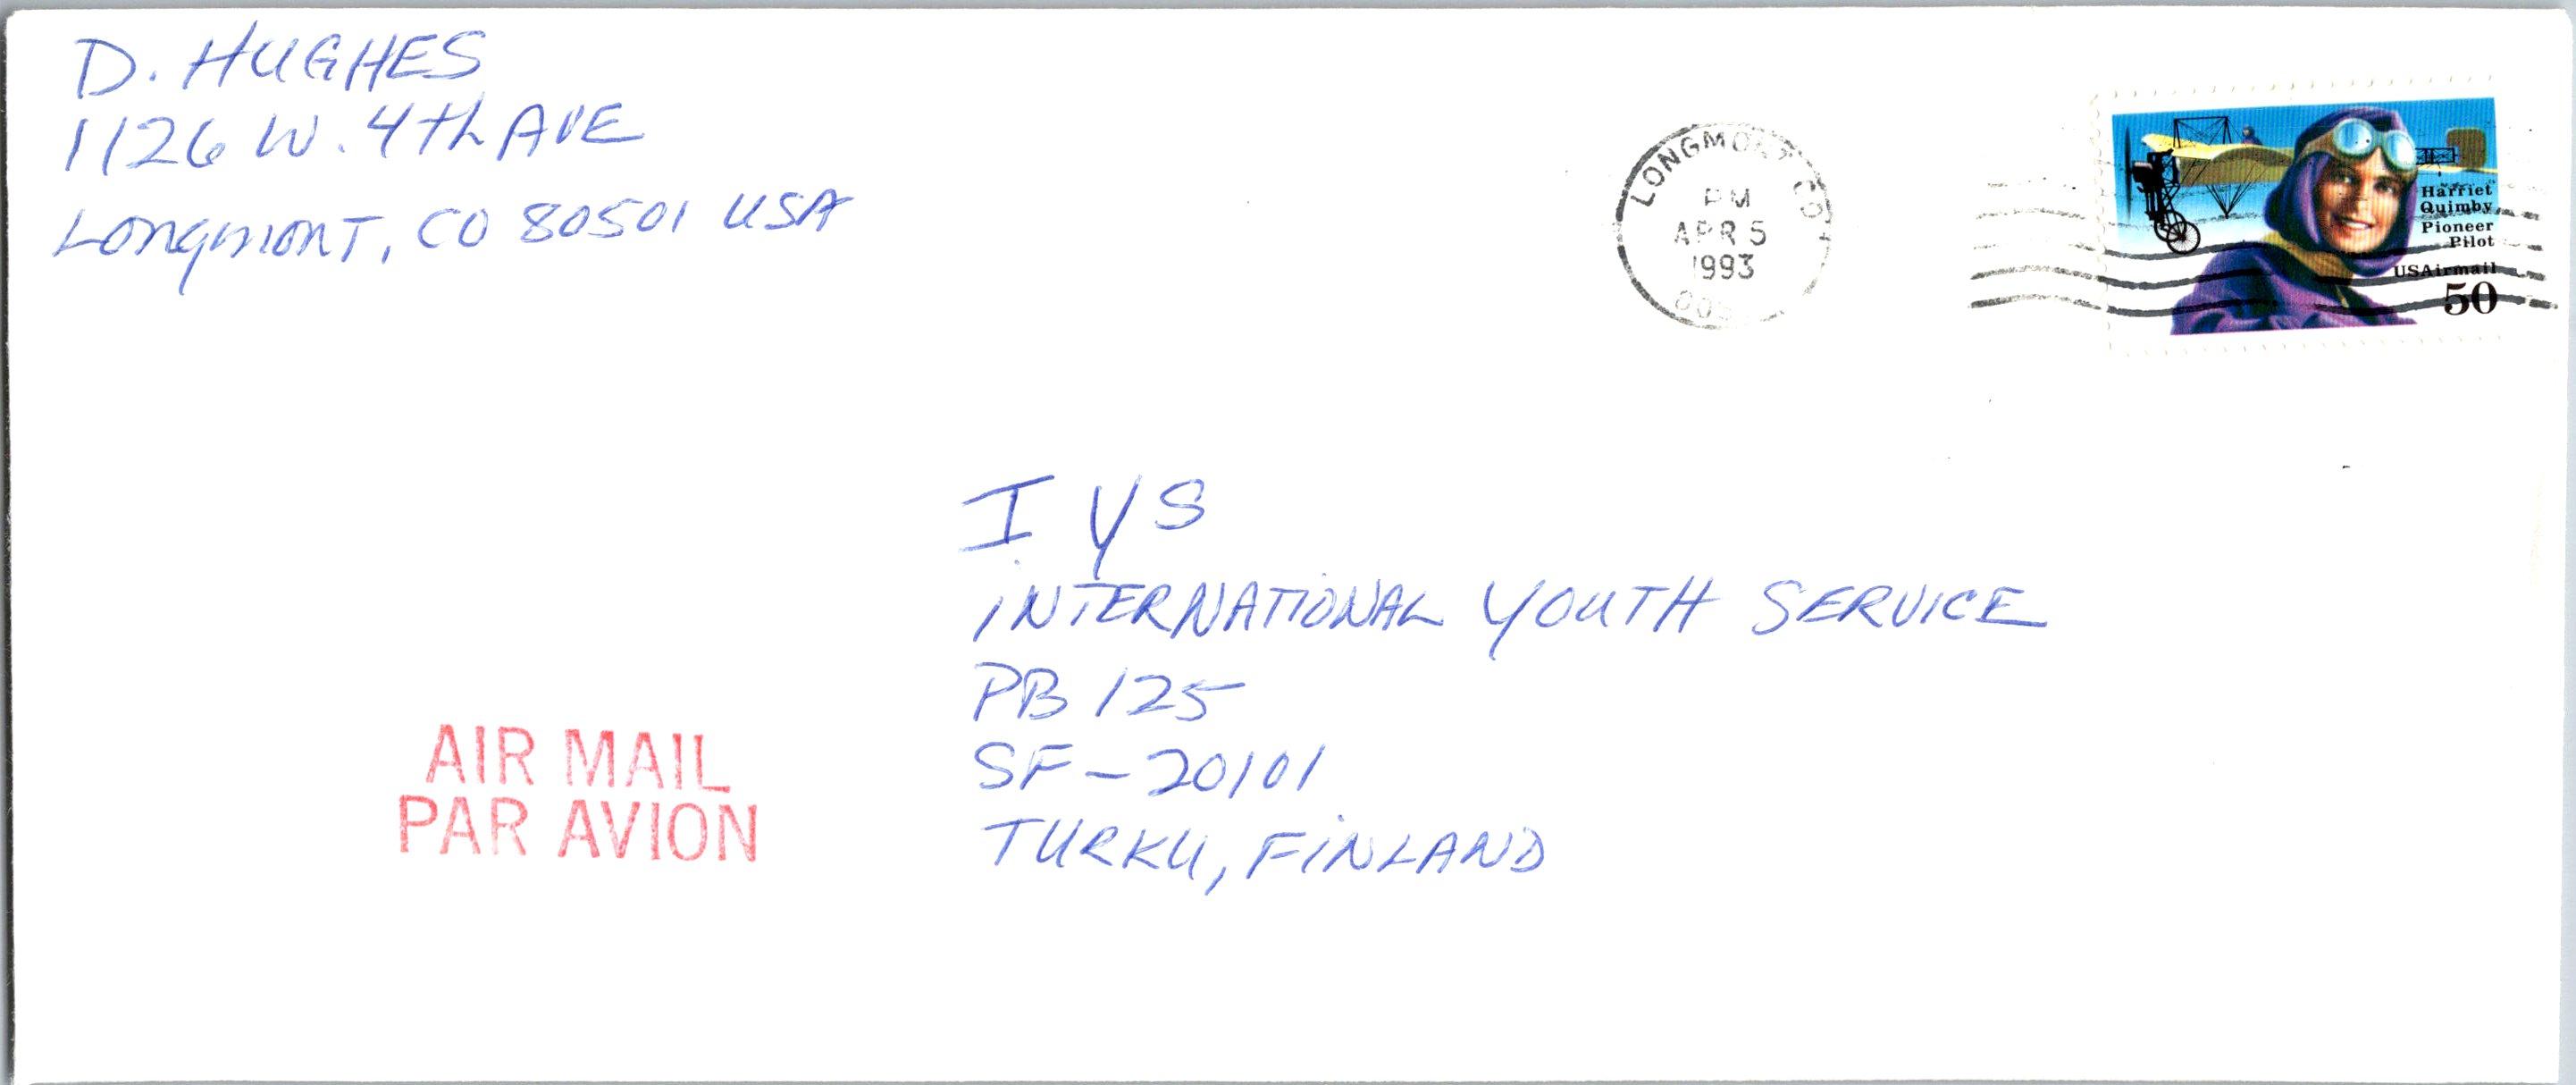 D. HUGHES
1126 W. 4th AVE
LONGMONT, CO 80501 USA
LONGMONT CO
PM
APR 5
1993
Harriet
Quimby
Pioneer
Pilot
USAirmail
50
I Y S
INTERNATIONAL YOUTH SERVICE
PB 125
SF - 20101
TURKU, FINLAND
AIR MAIL
PAR AVION